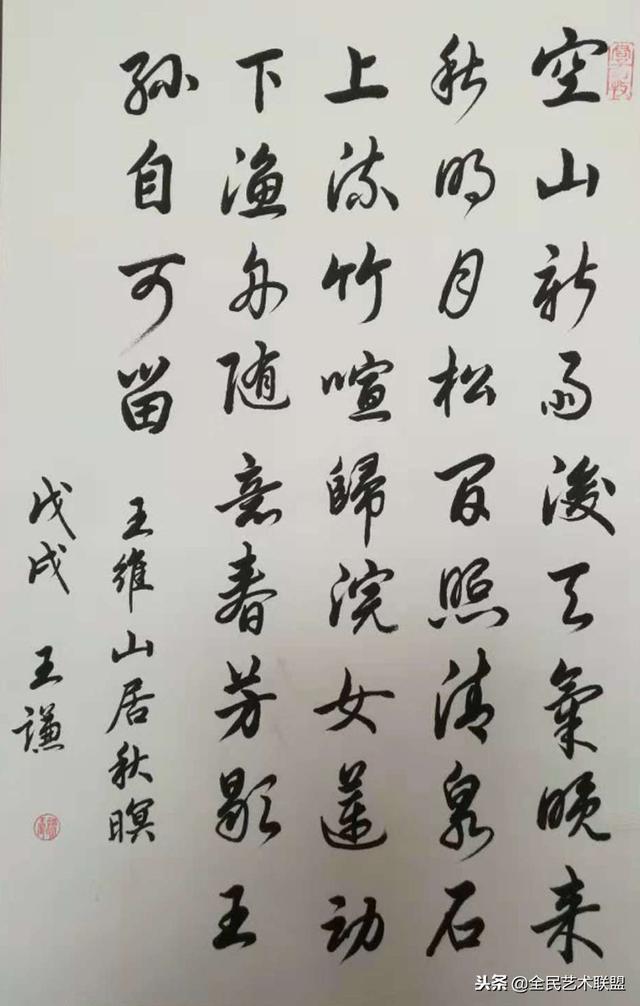 空山新雨後天氣晚来
秋明月松间照清泉石
上流竹喧歸浣女蓮動
下渔舟随意春芳歇王
孫自可留
王維山居秋暝
戊戌 王謙
头条 @全民艺术联盟